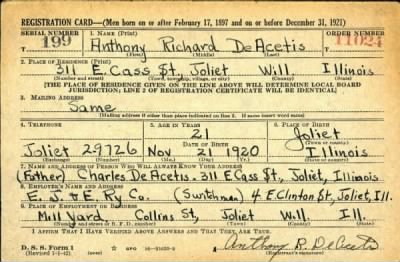 REGISTRATION CARD—(Men born on or after February 17, 1897 and on or before December 31, 1921)
SERIAL NUMBER 1. NAME (Print) ORDER NUMBER
199 Anthony Richard DeAcetis 11024
(First) (Middle) (Last)
2. PLACE OF RESIDENCE (Print)
311 E. Cass St, Joliet Will Illinois
(Number and street) (Town, township, village, or city) (County) (State)
[THE PLACE OF RESIDENCE GIVEN ON THE LINE ABOVE WILL DETERMINE LOCAL BOARD
JURISDICTION; LINE 2 OF REGISTRATION CERTIFICATE WILL BE IDENTICAL]
3. MAILING ADDRESS
Same
[Mailing address if other than place indicated on line 2. If same insert word same]
4. TELEPHONE 5. AGE IN YEARS 6. PLACE OF BIRTH
21 Joliet
DATE OF BIRTH (Town or county)
Joliet 29726 Nov 21 1920 Illinois
(Exchange) (Number) (Mo.) (Day) (Yr.) (State or country)
7. NAME AND ADDRESS OF PERSON WHO WILL ALWAYS KNOW YOUR ADDRESS
(Father) Charles DeAcetis - 311 E Cass St, Joliet, Illinois
8. EMPLOYER'S NAME AND ADDRESS
E. J. & E. Ry Co. (Switchman) 4 E. Clinton St, Joliet, Ill.
9. PLACE OF EMPLOYMENT OR BUSINESS
Mill Yard Collins St, Joliet Will. Ill.
(Number and street or R. F. D. number) (Town) (County) (State)
I AFFIRM THAT I HAVE VERIFIED ABOVE ANSWERS AND THAT THEY ARE TRUE.
D. S. S. Form 1 GPO Anthony R. DeAcetis
(Revised 1-1-42) (Registrant's signature)